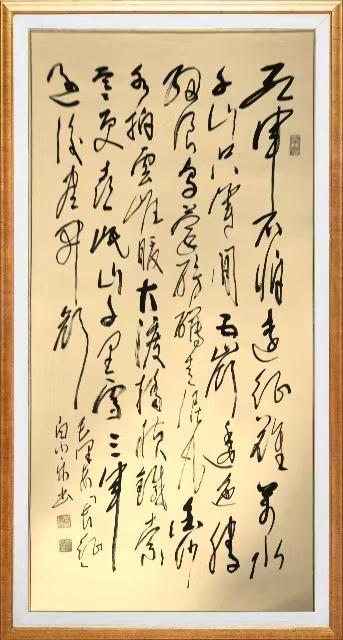 紅軍不怕遠征難萬水
千山只等閒五嶺逶迤騰
細浪烏蒙磅礴走泥丸金沙
水拍雲崖暖大渡橋橫鐵索
寒更喜岷山千里雪三軍
過後盡開顏
毛澤東《長征》
书